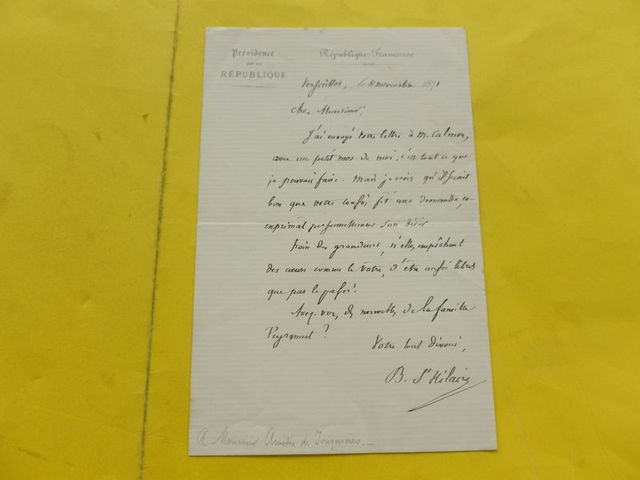 Présidence
DE LA
RÉPUBLIQUE
République Française
Versailles, le 8 novembre 1871
Cher Monsieur,
J'ai envoyé votre lettre à M. Calmon,
avec un petit mot de moi; c'est tout ce que
je pouvais faire. Mais je crois qu'il serait
bon que votre fît une demande,
exprimât personnellement son désir
des grandeurs, si elles empêchent
des cœurs comme le vôtre, d'être aussi libres
que par le passé!
Avez-vous des nouvelles de la famille
Peyronnet?
Votre tout dévoué,
B. St Hilaire
A Monsieur Amédée de Jonquières.